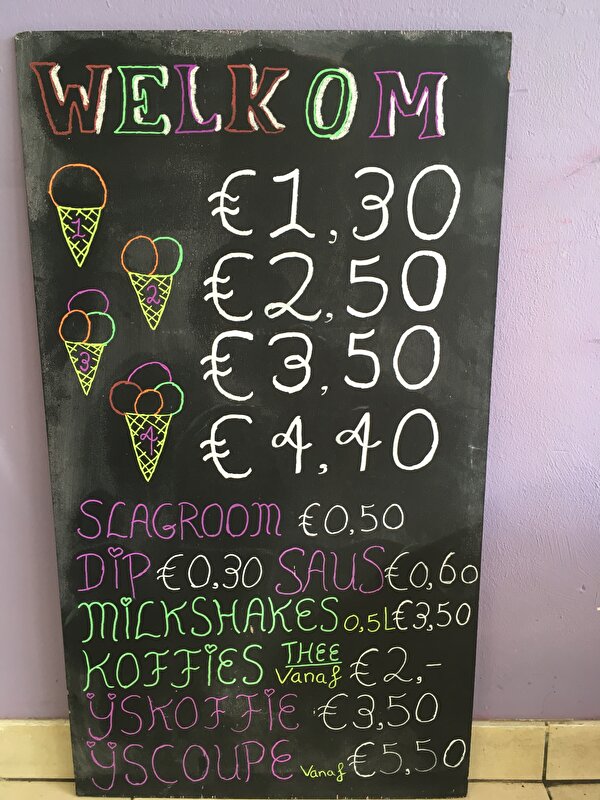 WELKOM
1 €1,30
2 €2,50
3 €3,50
4 €4,40
SLAGROOM €0,50
DIP €0,30 SAUS €0,60
MILKSHAKES 0,5L €3,50
KOFFIES THEE vanaf €2,-
IJSKOFFIE €3,50
IJSCOUPE vanaf €5,50